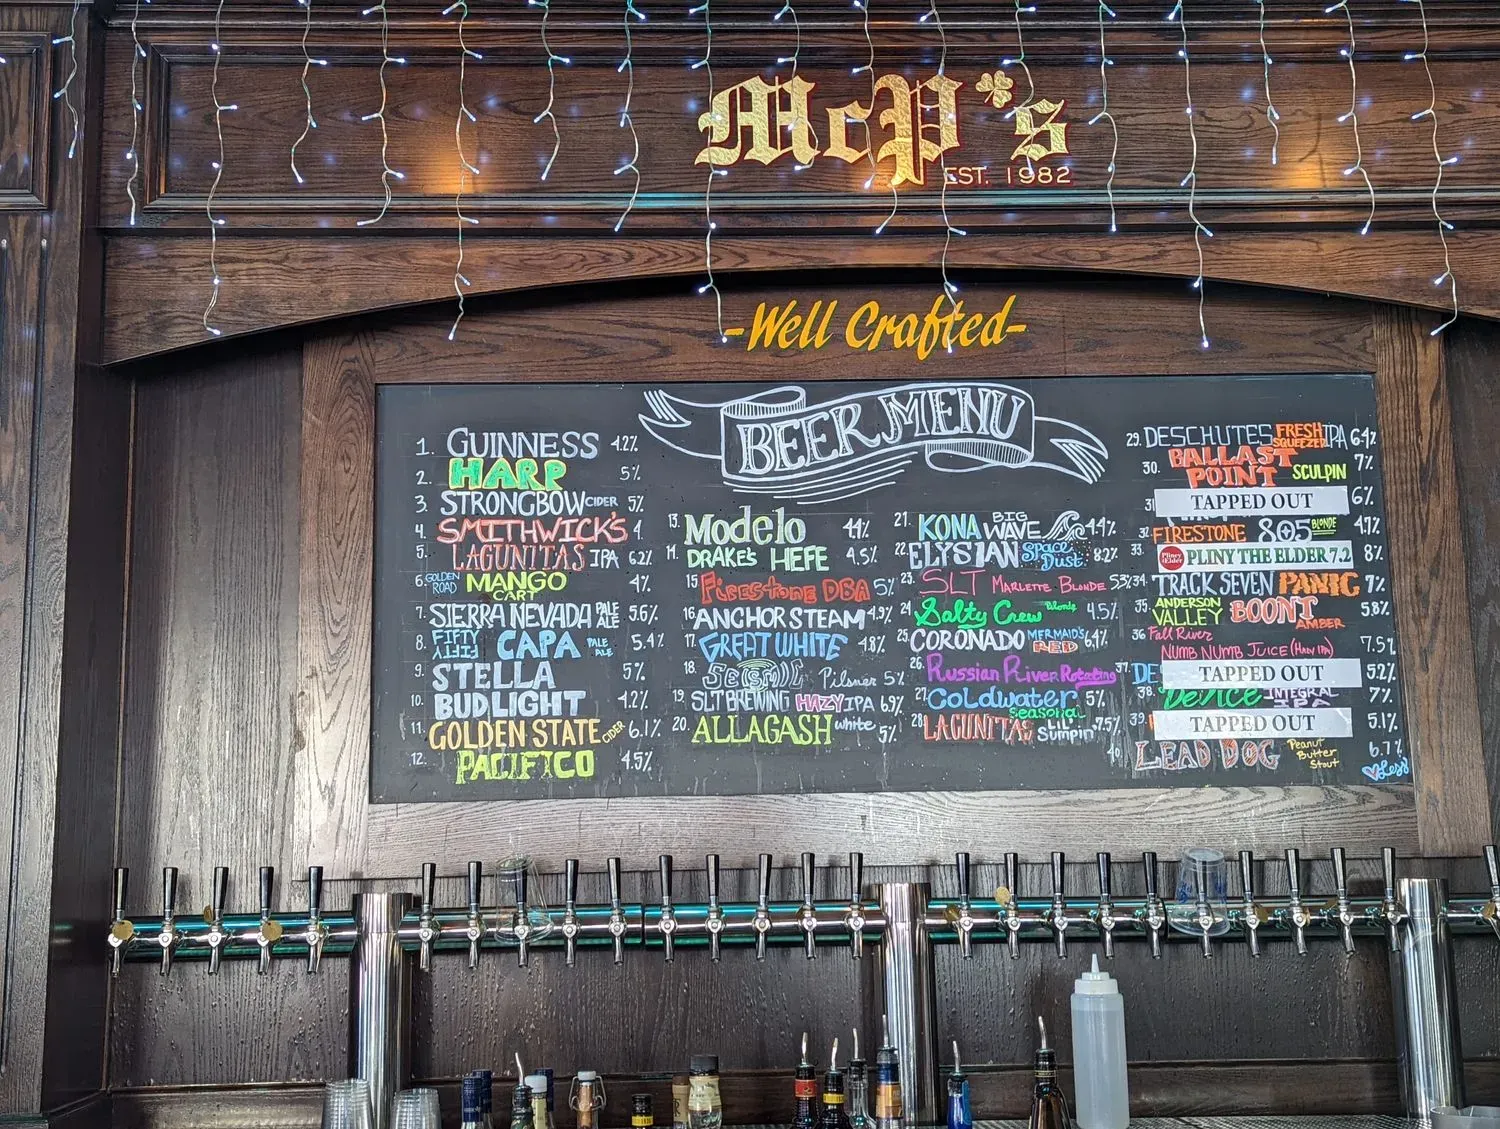 McP's
EST. 1982
-Well Crafted-
BEER MENU
1. GUINNESS 4.2%
2. HARP 5%
3. STRONGBOW CIDER 5%
4. SMITHWICK'S 4
5. LAGUNITAS IPA 6.2%
6. GOLDEN ROAD MANGO CART 4%
7. SIERRA NEVADA PALE ALE 5.6%
8. FIFTY FIFTY CAPA PALE ALE 5.4%
9. STELLA 5%
10. BUDLIGHT 4.2%
11. GOLDEN STATE CIDER 6.1%
12. PACIFICO 4.5%
13. Modelo 4.4%
14. DRAKE'S HEFE 4.5%
15 FIRESTONE DBA 5%
16. ANCHOR STEAM 4.9%
17. GREAT WHITE 4.8%
18. SEISMIC Pilsner 5%
19. SLT BREWING HAZY IPA 6.9%
20. ALLAGASH white 5%
21. KONA BIG WAVE 4.4%
22. ELYSIAN Space Dust 8.2%
23. SLT MARLETTE BLONDE 5.5%
24. Salty Crew Blonde 4.5%
25. CORONADO MERMAID'S RED 6.4%
26. Russian River Rotating
27. Coldwater Seasonal 5%
28. LAGUNITAS LIL' Sumpin' 7.5%
29. DESCHUTES FRESH SQUEEZED IPA 6.4%
30. BALLAST POINT SCULPIN 7%
31 TAPPED OUT 6%
32. FIRESTONE 805 BLONDE 4.7%
33. Pliny the Elder PLINY THE ELDER 7.2 8%
34. TRACK SEVEN PANIC 7%
35. ANDERSON VALLEY BOONT AMBER 5.8%
36 Fall River
NUMB NUMB JUICE (HAZY IPA) 7.5%
37. DE TAPPED OUT 5.2%
38. DEVICE INTEGRAL IPA 7%
39. TAPPED OUT 5.1%
40. LEAD DOG Peanut Butter Stout 6.7%